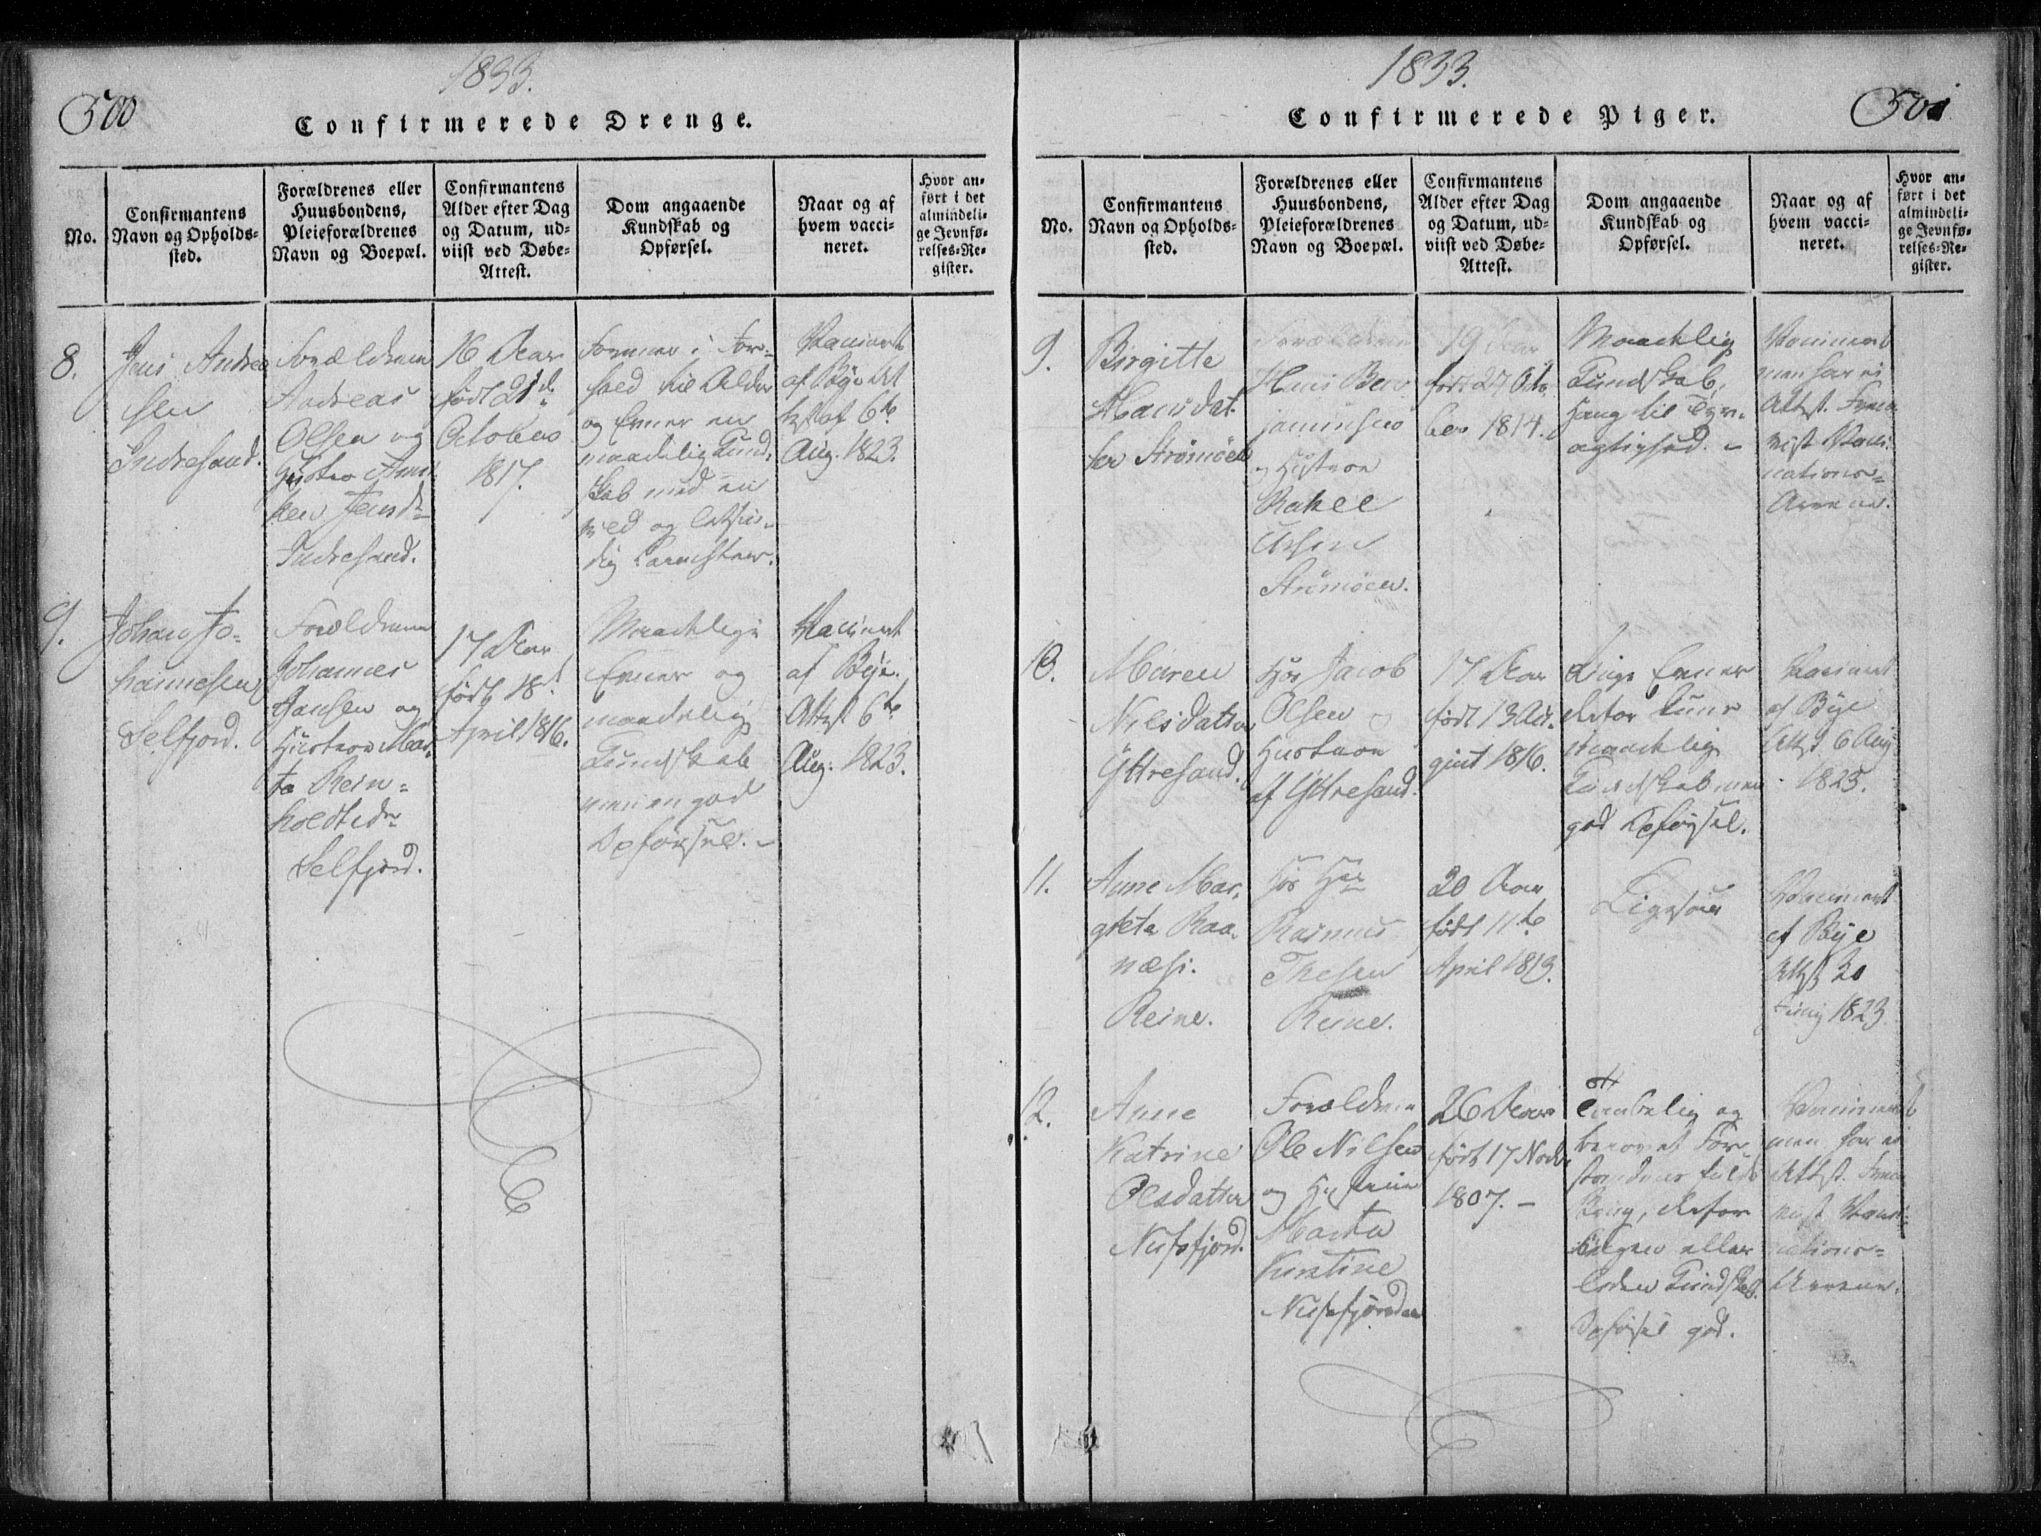 500
1833.
Confirmerede Drenge.
No.
Confirmantens
Navn og Opholds-
sted.
Forældrenes eller
Huusbondens,
Pleieforældrenes
Navn og Boepæl.
Confirmantens
Alder efter Dag
og Datum, ud-
viist ved Døbe-
Attest.
Dom angaaende
Kundskab og
Opførsel.
Naar og af
hvem vacci-
neret.
Hvor an-
ført i det
almindeli-
ge Jevnfø-
relses-Re-
gister.
8.
Jens Andrea
sen
Indresand.
Forældrene
Andreas
Olsen og
Jensd
Indresand.
16 Aar
født 21d
October
1817.
og Evner en
maadelig Kund-
skab med en
og letsin-
dig
Vaccineret
af Bye
af 6te
Aug. 1823.
9.
Johan Jo-
hannesen
Selfjord.
Forældrene
Johannes
Hansen og
Hustroe Mar-
ta Rein-
holdtsdr
Selfjord.
17 Aar
født 18d
April 1816.
Maadelige
Evner og
maadelig
Kundskab
men en god
Opførsel. -
Vaccineret
af Bye.
Attst 6te
Aug. 1823.
1833.
501
Confirmerede Piger.
No.
Confirmantens
Navn og Opholds-
sted.
Forældrenes eller
Huusbondens,
Pleieforældrenes
Navn og Boepæl.
Confirmantens
Alder efter Dag
og Datum, ud-
viist ved Døbe-
Attest.
Dom angaaende
Kundskab og
Opførsel.
Naar og af
hvem vacci-
neret.
Hvor an-
ført i det
almindeli-
ge Jevnfø-
relses-Re-
gister.
9.
Birgitte
Hansdat-
ter Strømøen
Forældrene
Hans Ben-
jaminsen
og Hustroe
Rakel
Strømøen.
19 Aar
født 27 Octo
ber 1814.
Maadelig
Kundskab,
Hang til Tyv-
agtighed. -
Vaccineret
men har ei
Attst. Frem-
vist Vacci-
nations-
Arrene.
10.
Maren
Nilsdatter
Yttresand.
Hos Jacob
Olsen og
Hustroe
af Yttresand.
17 Aar
født 13 Au-
gust 1816.
Ringe Evner
derfor kuns
maadelig
Kundskab men
god Opførsel.
Vaccineret
af Bye
Attst 6 Aug
1823.
11.
Anne Mar-
greta Raa-
næsi.
Reine.
Hos Hr
Rasmus
Thesen
Reine.
20 Aar
født 11te
April 1813.
Ligesom
Vaccineret
af Bye
Attst 20
Juny 1823
12.
Anne
Katrine
Olsdatter
Nufsfjord.
Forældrene
Ole Nilsen
og Hustrue
Marta
Kirstine
Nufsfjorden
26 Aar
født 17 Novbr
1807. -
og
berøvet For-
standens fulde
Brug, derfor
ingen eller
liden Kundskab.
Opførsel god.
Vaccineret
men har ei
Attst. Frem-
vist Vacci-
nations-
Arrene.